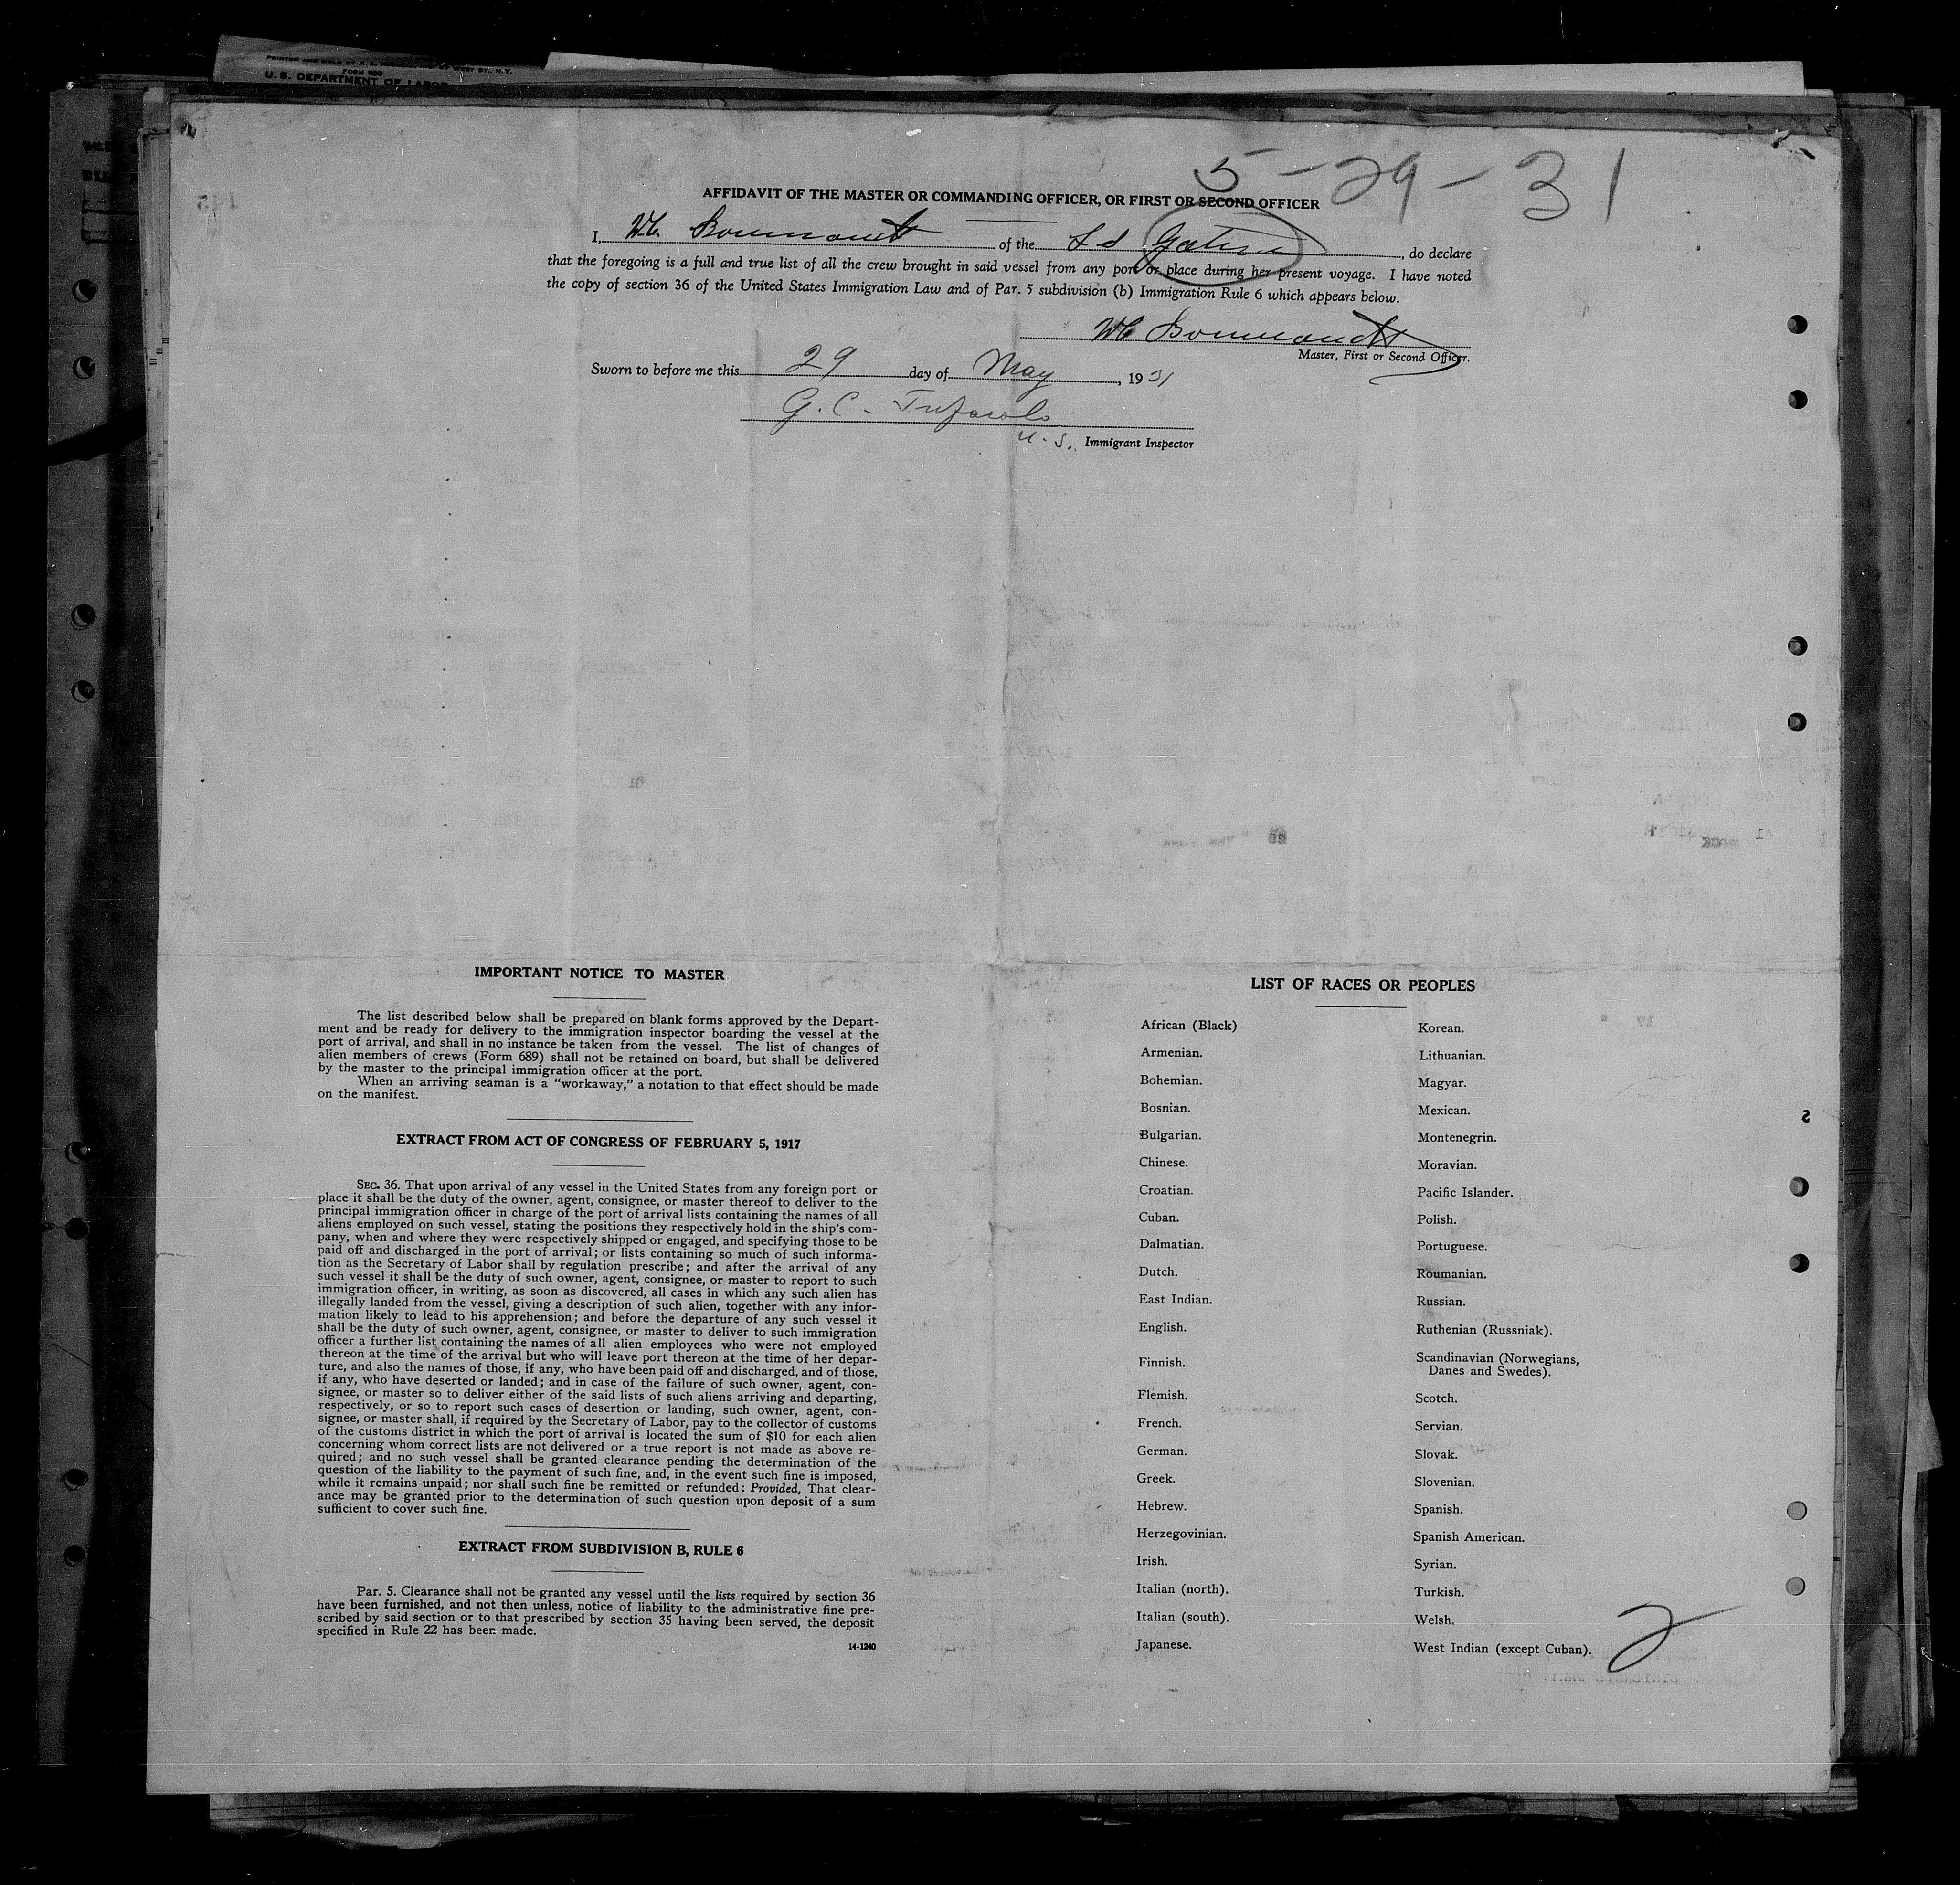 U. S. DEPARTMENT OF LABOR
5-29-31
AFFIDAVIT OF THE MASTER OR COMMANDING OFFICER, OR FIRST OR SECOND OFFICER
I, of the , do declare
that the foregoing is a full and true list of all the crew brought in said vessel from any port or place during her present voyage. I have noted
the copy of section 36 of the United States Immigration Law and of Par. 5 subdivision (b) Immigration Rule 6 which appears below.
Master, First or Second Officer.
Sworn to before me this 29 day of May, 1931
G. C.
U. S. Immigrant Inspector
IMPORTANT NOTICE TO MASTER
The list described below shall be prepared on blank forms approved by the Depart-
ment and be ready for delivery to the immigration inspector boarding the vessel at the
port of arrival, and shall in no instance be taken from the vessel. The list of changes of
alien members of crews (Form 689) shall not be retained on board, but shall be delivered
by the master to the principal immigration officer at the port.
When an arriving seaman is a "workaway," a notation to that effect should be made
on the manifest.
EXTRACT FROM ACT OF CONGRESS OF FEBRUARY 5, 1917
SEC. 36. That upon arrival of any vessel in the United States from any foreign port or
place it shall be the duty of the owner, agent, consignee, or master thereof to deliver to the
principal immigration officer in charge of the port of arrival lists containing the names of all
aliens employed on such vessel, stating the positions they respectively hold in the ship's com-
pany, when and where they were respectively shipped or engaged, and specifying those to be
paid off and discharged in the port of arrival; or lists containing so much of such informa-
tion as the Secretary of Labor shall by regulation prescribe; and after the arrival of any
such vessel it shall be the duty of such owner, agent, consignee, or master to report to such
immigration officer, in writing, as soon as discovered, all cases in which any such alien has
illegally landed from the vessel, giving a description of such alien, together with any infor-
mation likely to lead to his apprehension; and before the departure of any such vessel it
shall be the duty of such owner, agent, consignee, or master to deliver to such immigration
officer a further list containing the names of all alien employees who were not employed
thereon at the time of the arrival but who will leave port thereon at the time of her depar-
ture, and also the names of those, if any, who have been paid off and discharged, and of those,
if any, who have deserted or landed; and in case of the failure of such owner, agent, con-
signee, or master so to deliver either of the said lists of such aliens arriving and departing,
respectively, or so to report such cases of desertion or landing, such owner, agent, con-
signee, or master shall, if required by the Secretary of Labor, pay to the collector of customs
of the customs district in which the port of arrival is located the sum of $10 for each alien
concerning whom correct lists are not delivered or a true report is not made as above re-
quired; and no such vessel shall be granted clearance pending the determination of the
question of the liability to the payment of such fine, and, in the event such fine is imposed,
while it remains unpaid; nor shall such fine be remitted or refunded: Provided, That clear-
ance may be granted prior to the determination of such question upon deposit of a sum
sufficient to cover such fine.
EXTRACT FROM SUBDIVISION B, RULE 6
Par. 5. Clearance shall not be granted any vessel until the lists required by section 36
have been furnished, and not then unless, notice of liability to the administrative fine pre-
scribed by said section or to that prescribed by section 35 having been served, the deposit
specified in Rule 22 has been made.
14-1240
LIST OF RACES OR PEOPLES
African (Black)
Armenian.
Bohemian.
Bosnian.
Bulgarian.
Chinese.
Croatian.
Cuban.
Dalmatian.
Dutch.
East Indian.
English.
Finnish.
Flemish.
French.
German.
Greek.
Hebrew.
Herzegovinian.
Irish.
Italian (north).
Italian (south).
Japanese.
Korean.
Lithuanian.
Magyar.
Mexican.
Montenegrin.
Moravian.
Pacific Islander.
Polish.
Portuguese.
Roumanian.
Russian.
Ruthenian (Russniak).
Scandinavian (Norwegians,
Danes and Swedes).
Scotch.
Servian.
Slovak.
Slovenian.
Spanish.
Spanish American.
Syrian.
Turkish.
Welsh.
West Indian (except Cuban).
2